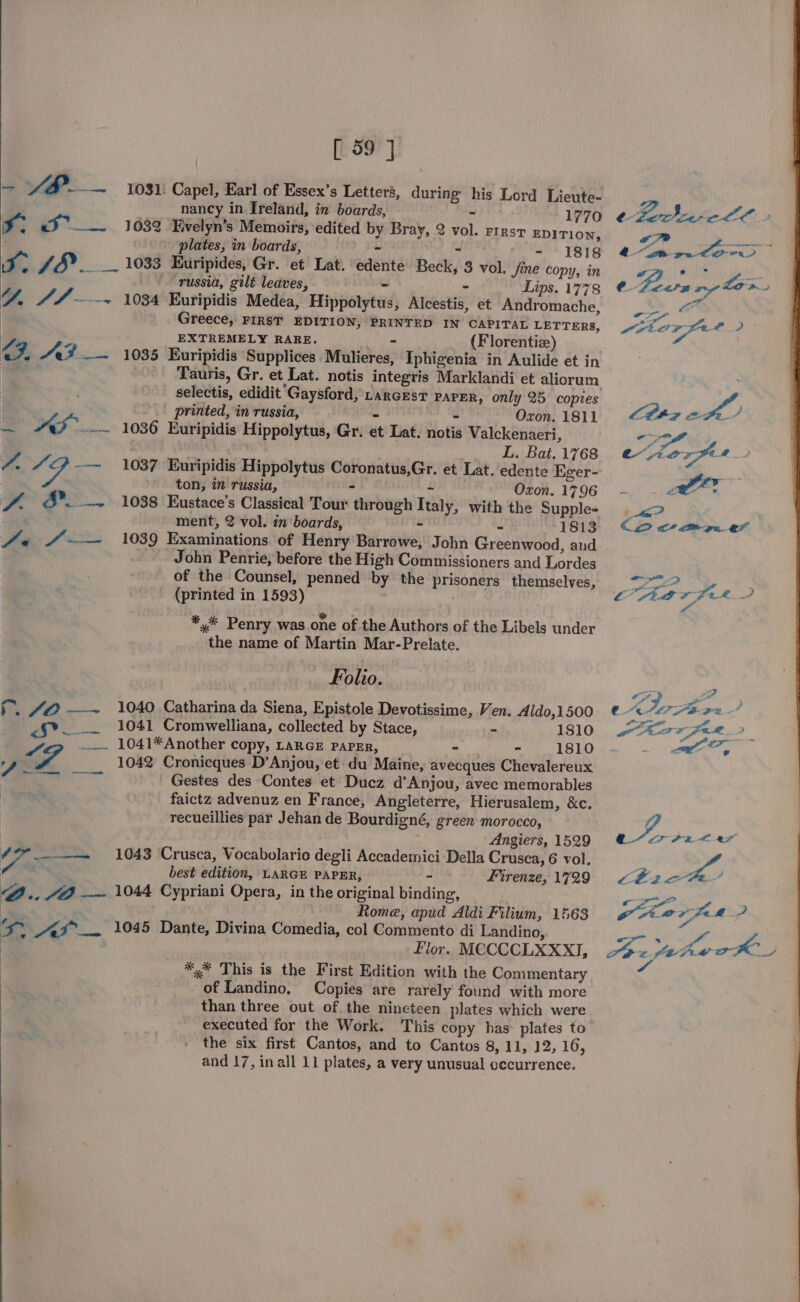 [ 59 ]
1031 Capel, Earl of Essex's Letters, during his Lord Lieute-
nancy in Ireland, in boards, - 1770
1032 Evelyn's Memoirs, edited by Bray, 2 vol. FIRST EDITION,
plates, in boards, - - - 1818
1033 Euripides, Gr. et Lat. edente Beck, 3 vol. fine copy, in
russia, gilt leaves, - - Lips. 1778
1034 Euripidis Medea, Hippolytus, Alcestis, et Andromache,
Greece, FIRST EDITION, PRINTED IN CAPITAL LETTERS,
EXTREMELY RARE. - (Florentiæ)
1035 Euripidis Supplices Mulieres, Iphigenia in Aulide et in
Tauris, Gr. et Lat. notis integris Marklandi et aliorum
selectis, edidit Gaysford, LARGEST PAPER, only 25 copies
printed, in russia, - - Oxon. 1811
1036 Euripidis Hippolytus, Gr. et Lat. notis Valckenaeri,
L. Bat. 1768
1037 Euripidis Hippolytus Coronatus, Gr. et Lat. edente Eger-
ton, in russia, - - Oxon. 1796
1038 Eustace's Classical Tour through Italy, with the Supple-
ment, 2 vol. in boards, - - 1813
1039 Examinations of Henry Barrowe, John Greenwood, and
John Penrie, before the High Commissioners and Lordes
of the Counsel, penned by the prisoners themselves,
(printed in 1593)
*** Penry was one of the Authors of the Libels under
the name of Martin Mar-Prelate.
Folio.
1040 Catharina da Siena, Epistole Devotissime, Ven. Aldo, 1500
1041 Cromwelliana, collected by Stace, - 1810
1041*Another copy, LARGE PAPER, - - 1810
1042 Cronicques D'Anjou, et du Maine, avecques Chevalereux
Gestes des Contes et Ducz d'Anjou, avec memorables
faictz advenuz en France, Angleterre, Hierusalem, &c.
recueillies par Jehan de Bourdigné, green morocco,
Angiers, 1529
1043 Crusca, Vocabolario degli Accademici Della Crusca, 6 vol.
best edition, LARGE PAPER, - Firenze, 1729
1044 Cypriani Opera, in the original binding,
Rome, apud Aldi Filium, 1563
1045 Dante, Divina Comedia, col Commento di Landino,
Flor. MCCCCLXXXI,
*** This is the First Edition with the Commentary
of Landino. Copies are rarely found with more
than three out of the nineteen plates which were
executed for the Work. This copy has plates to
the six first Cantos, and to Cantos 8, 11, 12, 16,
and 17, in all 11 plates, a very unusual occurrence.